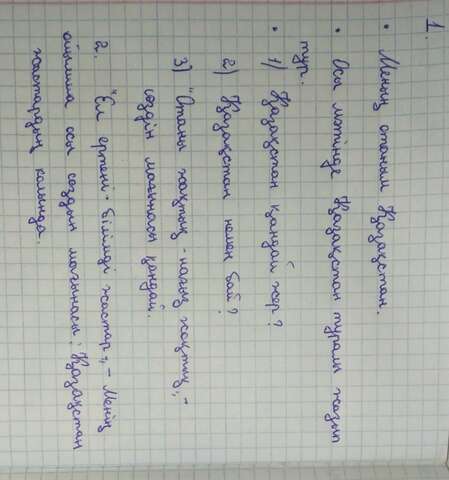 1.
• Менің отаным Қазақстан.
• Осы мәтінде Қазақстан туралы жазып
тұр.
• 1) Қазақстан қандай жер?
2) Қазақстан немен бай?
3) "Отаны жақтың - нағыз жақтың" -
сөздін мағынасы қандай.
2. "Ел ертені - білімді жастар" - Менің
ойымша осы сөздын мағынасы: Қазақстан
жастардың колында.